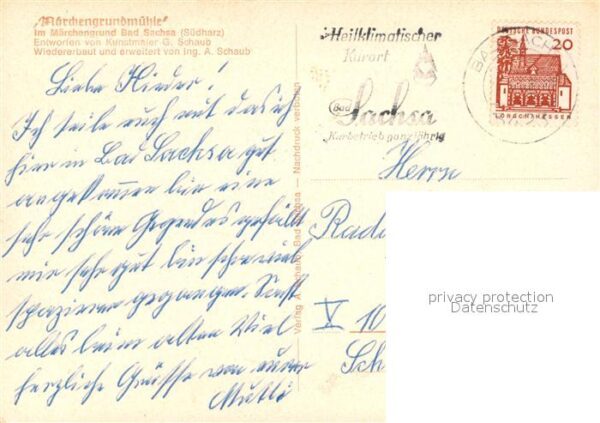 "Märchengrundmühle"
im Märchengrund Bad Sachsa (Südharz)
Entworfen von Kunstmaler G. Schaub
Wiedererbaut und erweitert von Ing. A. Schaub
Liebe Kinder!
Ich teile euch mit das ich
hier in Bad Sachsa gut
angekommen bin eine
sehr schöne Gegend es gefällt
mir sehr gut bin schon viel
spazieren gegangen. Sonst
alles beim alten Viel
herzliche Grüsse von eurer
Mutti
Nachdruck verboten
Verlag A. Bad Sachsa
Heilklimatischer
Kurort
Bad
Sachsa
Kurbetrieb ganzjährig
BAD SACHSA
DEUTSCHE BUNDESPOST
20
LORSCH/HESSEN
Herrn
V 10
privacy protection
Datenschutz